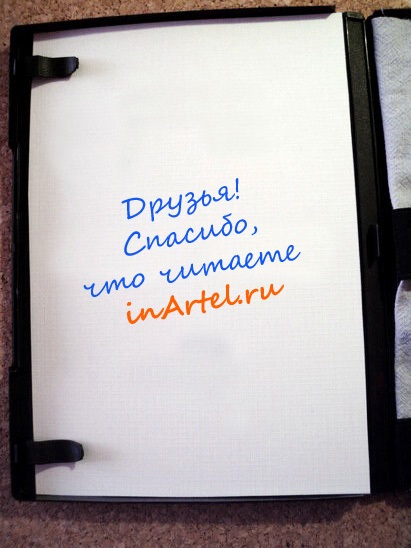 Друзья!
Спасибо,
что читаете
inArtel.ru